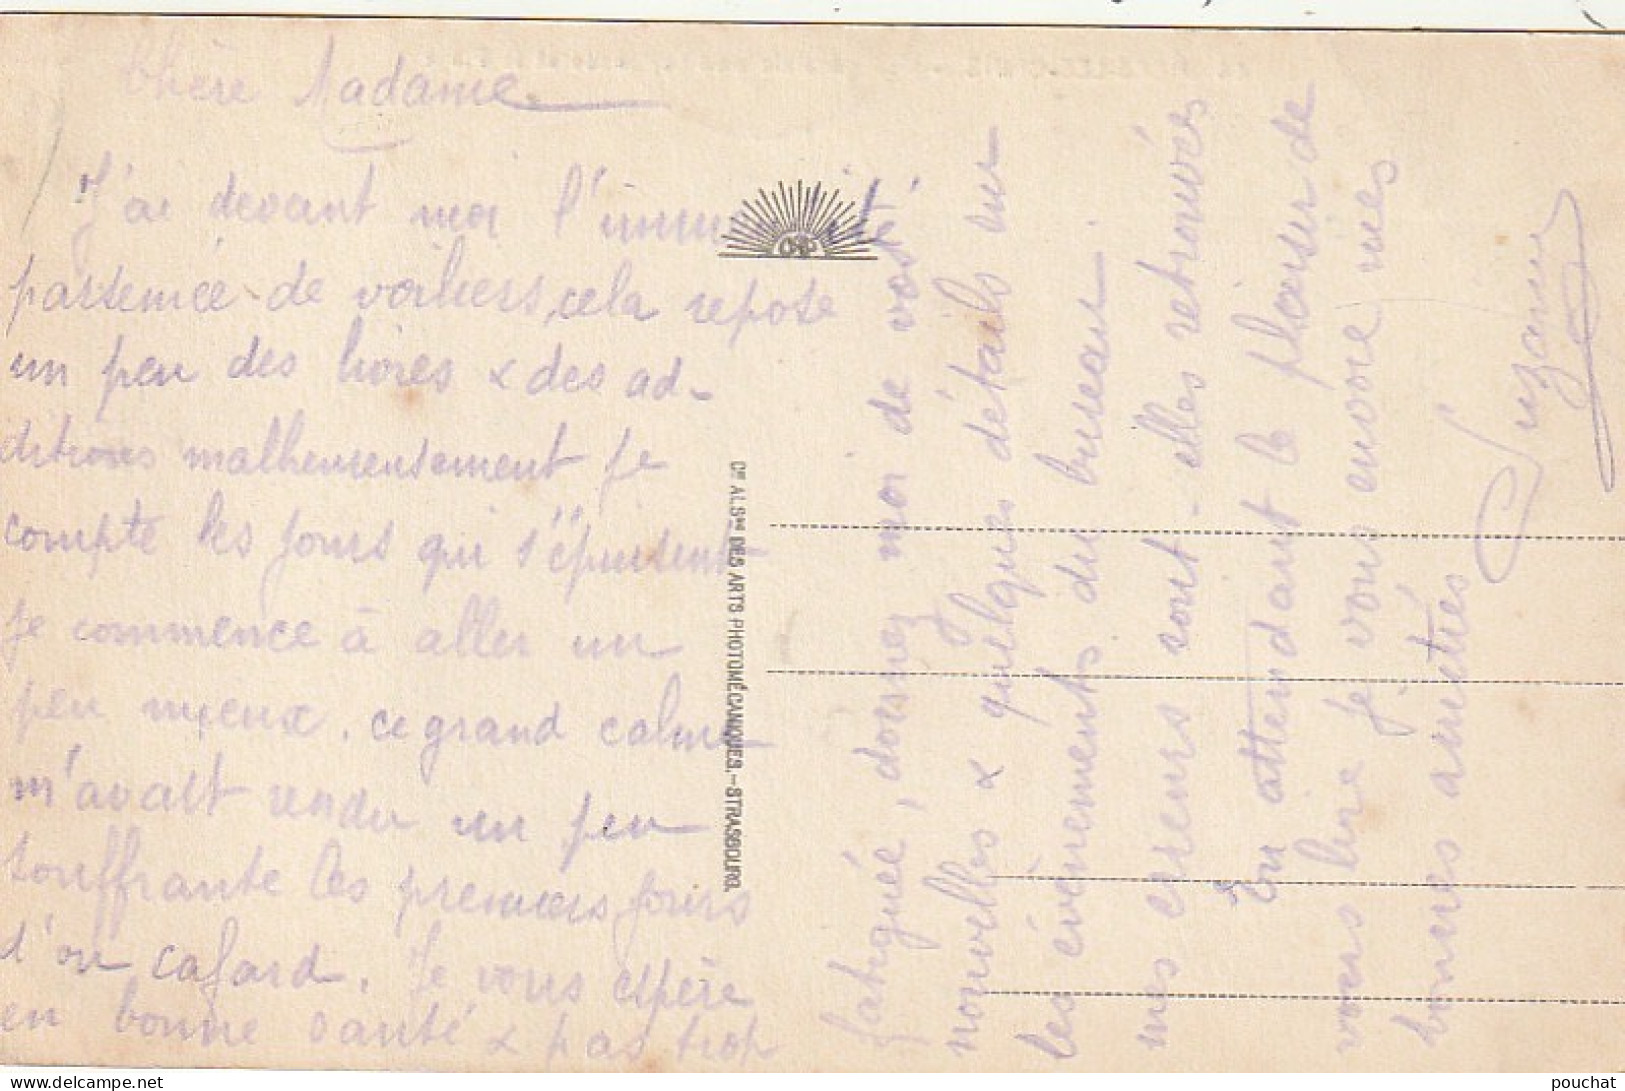 Chère Madame
J'ai devant moi l'immensité
parsemée de voiliers, cela repose
un peu des livres & des ad-
ditions malheureusement je
compte les jours qui s'épuisent
je commence à aller un
peu mieux. ce grand calme
m'avait rendu un peu
souffrante les premiers jours
d'où cafard. Je vous espère
en bonne santé & pas trop
fatiguée, donnez moi de vos
nouvelles & quelques détails sur
les évènements du bureau.
mes erreurs sont-elles retrouvées
En attendant le plaisir de
vous lire je vous envoie mes
bonnes amitiés
Suzanne
Cie ALSne DES ARTS PHOTOMÉCANIQUES.-STRASBOURG.
pouchat
www.delcampe.net